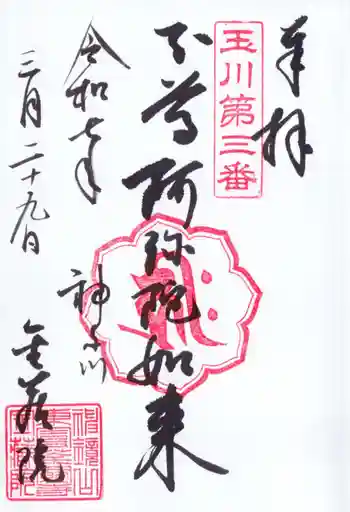 奉拝
玉川第三番
本尊阿弥陀如来
令和七年
三月二十九日
神奈川
金蔵院